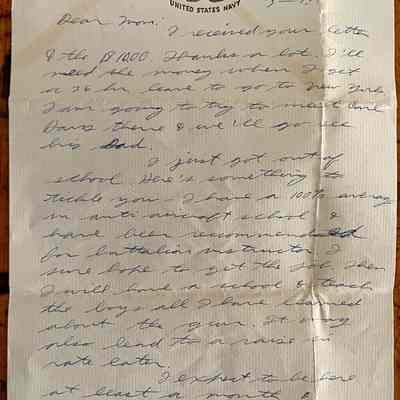 UNITED STATES NAVY
Dear Mom:
I received your letter
& the $10.00. Thanks a lot. I'll
need the money when I get
a 36 hr leave to go to New York.
I am going to try to meet
Davis there & we'll go see
his Dad.
I just got out of
school. Here's something to
tickle you. I have a 100% average
in anti aircraft school &
have been recommended
for battalion instructor. I
sure hope to get the job. Then
I will have a school & teach
the boys all I have learned
about the gun. It may
also lead to a raise in
rate later.
I expect to be here
at least a month &